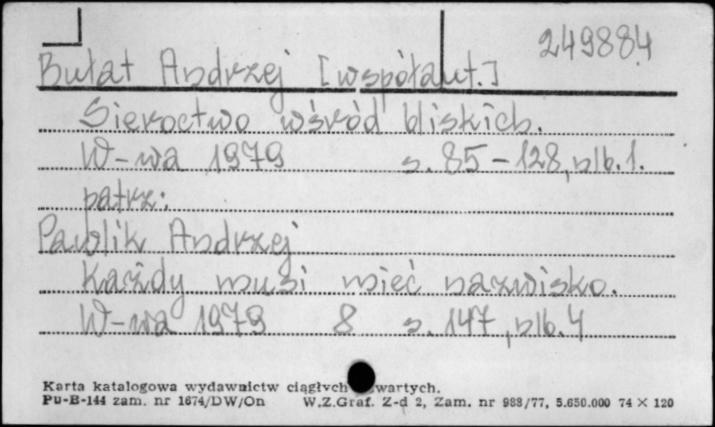 249884
Bułat Andrzej [współaut.]
Sieroctwo wśród bliskich.
W-wa 1979 s. 85-128, nlb. 1.
patrz:
Pawlik Andrzej
Każdy musi mieć nazwisko.
W-wa 1979 8 s. 147, nlb. 4
Karta katalogowa wydawnictw ciągłych wartych.
Pu-B-144 zam. nr 1674/DW/On W.Z.Graf. Z-d 2, Zam. nr 988/77, 5.650.000 74 × 120